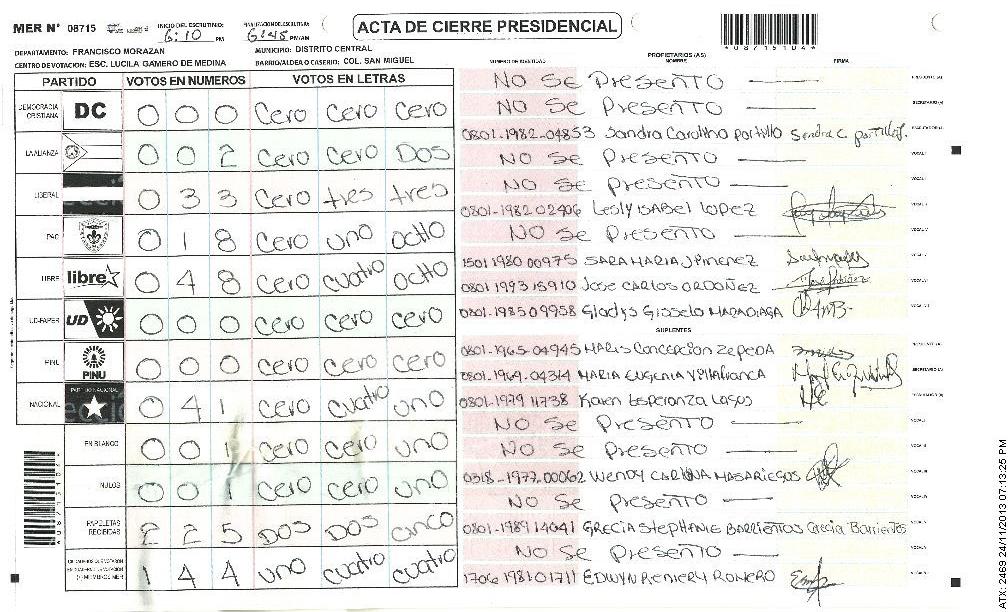 MER N° 08715 INICIO DEL ESCRUTINIO: 6:10 PM FINALIZACION DEL ESCRUTINIO: 6:45 PM/AM
ACTA DE CIERRE PRESIDENCIAL
*08715104*
DEPARTAMENTO: FRANCISCO MORAZAN MUNICIPIO: DISTRITO CENTRAL
CENTRO DE VOTACION: ESC. LUCILA GAMERO DE MEDINA BARRIO/ALDEA O CASERIO: COL. SAN MIGUEL
PARTIDO VOTOS EN NUMEROS VOTOS EN LETRAS
DEMOCRACIA CRISTIANA DC 0 0 0 Cero Cero Cero
LA ALIANZA 0 0 2 Cero Cero DOS
LIBERAL 0 3 3 Cero tres tres
PAC 0 1 8 Cero uno ocho
LIBRE libre 0 4 8 Cero cuatro ocho
UD-FAPER UD 0 0 0 Cero Cero Cero
PINU PINU 0 0 0 Cero Cero Cero
NACIONAL PARTIDO NACIONAL 0 4 1 Cero cuatro uno
EN BLANCO 0 0 1 Cero Cero uno
NULOS 0 0 1 Cero Cero uno
PAPELETAS RECIBIDAS 2 2 5 DOS DOS cinco
1 4 4 uno cuatro cuatro
NUMERO DE IDENTIDAD PROPIETARIOS (AS) NOMBRE FIRMA
NO Se Presento
NO Se Presento
0801-1982-04853 Sandra Carolina portillo Sandra C. portillo
NO Se Presento
NO Se Presento
0801-1982 02406 Lesly ISABEL LOPEZ
NO Se Presento
1501 1980 00975 SARA MARIA JIMENEZ
0801 1993 15910 JOSE CARLOS ORDOÑEZ
0801-1985 09958 Gladys Gissela MARADIAGA
SUPLENTES
0801-1965-04945 MARIS Concepcion ZEPEDA
0801-1964-04314 MARIA EUGENIA Villafranca
0801-1979 11738 Karen Esperanza Lagos
NO Se Presento
NO Se Presento
0318-1977-00062 Wendy CAROLINA MASARIEGOS
NO Se Presento
0801-1989 14041 GRECIA Stephanie BARRIENTOS Grecia Barrientos
NO Se Presento
1706 1981 01711 EDWYN RENIERY ROMERO
ATX: 2469 24/11/2013 07:13:25 PM